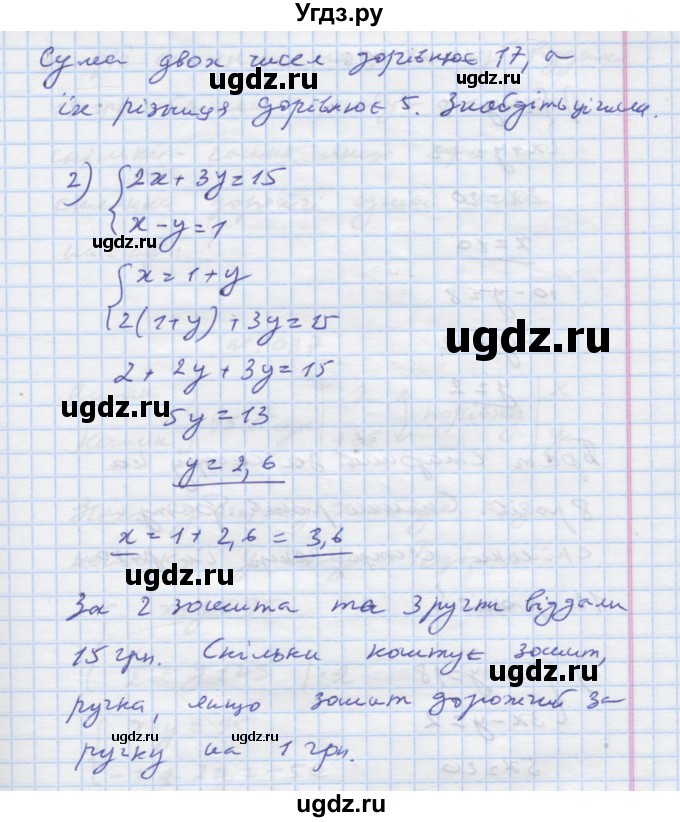 Угдз.ру
Сума двох чисел дорівнює 17, а
ugdz.ru ugdz.ru
їх різниця дорівнює 5. Знайдіть ці числа.
2) { 2x + 3y = 15
x - y = 1
ugdz.ru
{ x = 1 + y
2(1+y) + 3y = 15
ugdz.ru
2 + 2y + 3y = 15
ugdz.ru
5y = 13
y = 2,6
x = 1 + 2,6 = 3,6
ugdz.ru
За 2 зошита та 3 ручки віддали
15 грн. Скільки коштує зошит,
ugdz.ru
ручка, якщо зошит дорожчий за
ugdz.ru ugdz.ru
ручку на 1 грн.
ugdz.ru